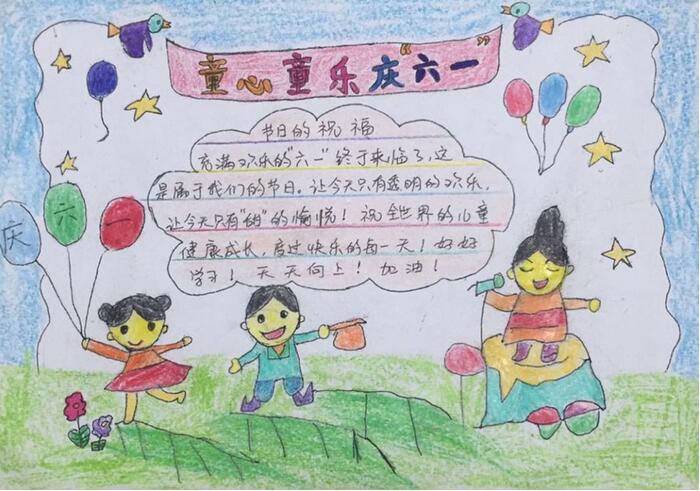 童心童乐庆“六一”
节日的祝福
充满欢乐的“六一”终于来临了,这
是属于我们的节日。让今天只有透明的欢乐,
让今天只有“甜”的愉悦!祝全世界的儿童
健康成长,度过快乐的每一天!好好
学习!天天向上!加油!
庆六一